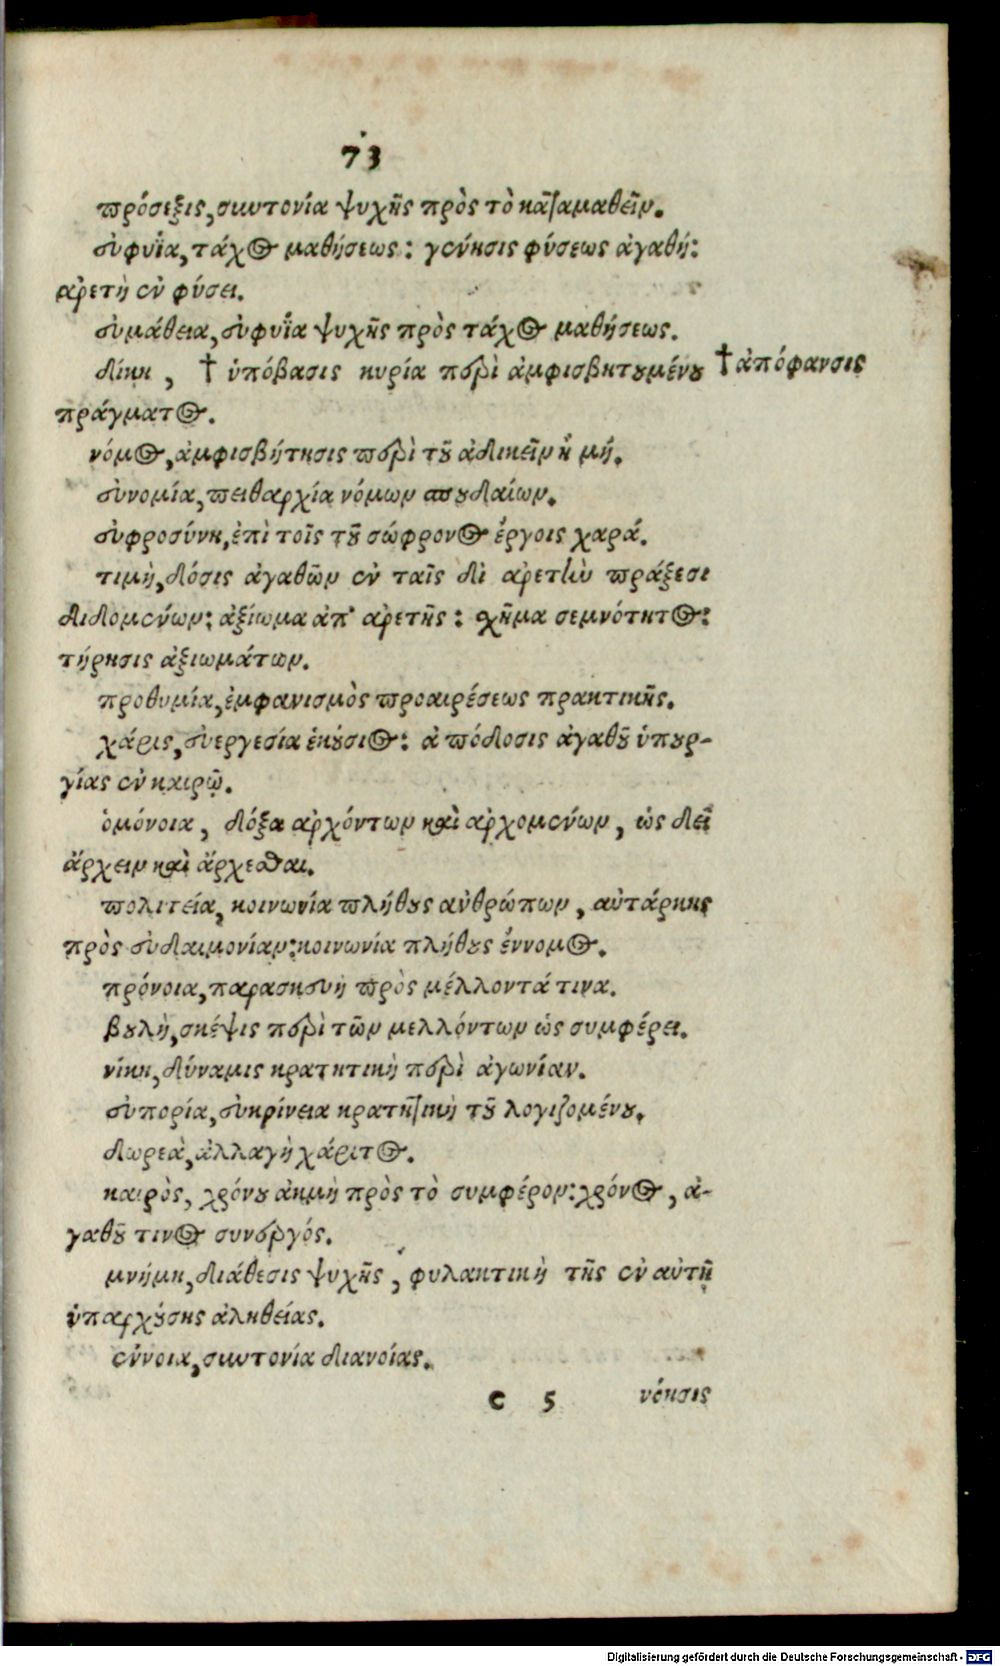 73
πρόσεξις, συντονία ψυχῆς πρὸς τὸ καταμαθεῖν.
εὐφυΐα, τάχος μαθήσεως: γέννησις φύσεως ἀγαθή:
ἀρετὴ ἐν φύσει.
εὐμάθεια, εὐφυΐα ψυχῆς πρὸς τάχος μαθήσεως.
δίκη, † ὑπόβασις κυρία περὶ ἀμφισβητουμένου †ἀπόφανσις
πράγματος.
νόμος, ἀμφισβήτησις περὶ τοῦ ἀδικεῖν ἢ μή.
εὐνομία, πειθαρχία νόμων σπουδαίων.
εὐφροσύνη, ἐπὶ τοῖς τοῦ σώφρονος ἔργοις χαρά.
τιμὴ, δόσις ἀγαθῶν ἐν ταῖς δι ἀρετὴν πράξεσι
διδομένων: ἀξίωμα ἀπ' ἀρετῆς: σχῆμα σεμνότητος:
τήρησις ἀξιωμάτων.
προθυμία, ἐμφανισμὸς προαιρέσεως πρακτικῆς.
χάρις, εὐεργεσία ἑκούσιος: ἀπόδοσις ἀγαθοῦ ὑπουρ-
γίας ἐν καιρῷ.
ὁμόνοια, δόξα ἀρχόντων καὶ ἀρχομένων, ὡς δεῖ
ἄρχειν καὶ ἄρχεσθαι.
πολιτεία, κοινωνία πλήθους ἀνθρώπων, αὐτάρκης
πρὸς εὐδαιμονίαν: κοινωνία πλήθους ἔννομος.
πρόνοια, παρασκευὴ πρὸς μέλλοντά τινα.
βουλὴ, σκέψις περὶ τῶν μελλόντων ὡς συμφέρει.
νίκη, δύναμις κρατητικὴ περὶ ἀγωνίαν.
εὐπορία, εὐκρίνεια κρατητικὴ τοῦ λογιζομένου.
δωρεὰ, ἀλλαγὴ χάριτος.
καιρὸς, χρόνου ἀκμὴ πρὸς τὸ συμφέρον: χρόνος, ἀ-
γαθοῦ τινος συνεργός.
μνήμη, διάθεσις ψυχῆς, φυλακτικὴ τῆς ἐν αὐτῇ
ὑπαρχούσης ἀληθείας.
ἔννοια, συντονία διανοίας.
c 5 νόησις
Digitalisierung gefördert durch die Deutsche Forschungsgemeinschaft - DFG